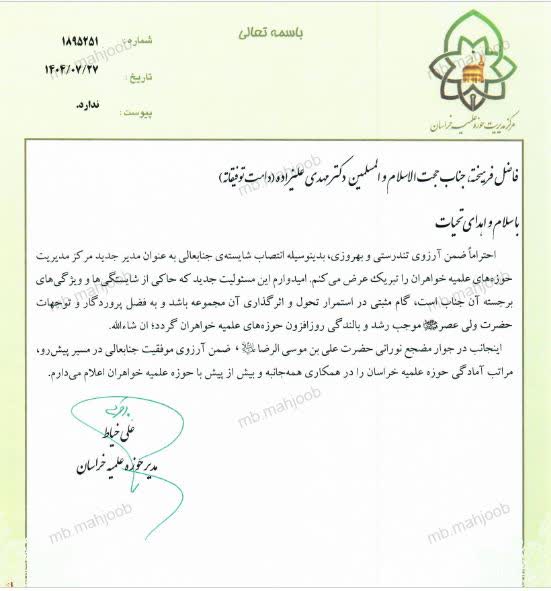 باسمه تعالی
شماره: ۱۸۹۵۲۵۱
تاریخ: ۱۴۰۴/۰۷/۲۷
پیوست: ندارد.
مرکز مدیریت حوزه علمیه خراسان
فاضل فرهیخته، جناب حجت الاسلام و المسلمین دکتر مهدی علیزاده (دامت توفیقاته)
باسلام و اهدای تحیات
احتراماً ضمن آرزوی تندرستی و بهروزی، بدینوسیله انتصاب شایسته‌ی جنابعالی به عنوان مدیر جدید مرکز مدیریت
حوزه‌های علمیه خواهران را تبریک عرض می‌کنم. امیدوارم این مسئولیت جدید که حاکی از شایستگی‌ها و ویژگی‌های
برجسته آن جناب است، گام مثبتی در استمرار تحول و اثرگذاری آن مجموعه باشد و به فضل پروردگار و توجهات
حضرت ولی عصر موجب رشد و بالندگی روزافزون حوزه‌های علمیه خواهران گردد؛ ان شاءالله.
اینجانب در جوار مضجع نورانی حضرت علی بن موسی الرضا، ضمن آرزوی موفقیت جنابعالی در مسیر پیش‌رو،
مراتب آمادگی حوزه علمیه خراسان را در همکاری همه‌جانبه و بیش از پیش با حوزه علمیه خواهران اعلام می‌دارم.
علی خیاط
مدیر حوزه علمیه خراسان
mb.mahjoob
mb.mahjoob
mb.mahjoob
mb.mahjoob
mb.mahjoob
mb.mahjoob
mb.mahjoob
mb.mahjoob